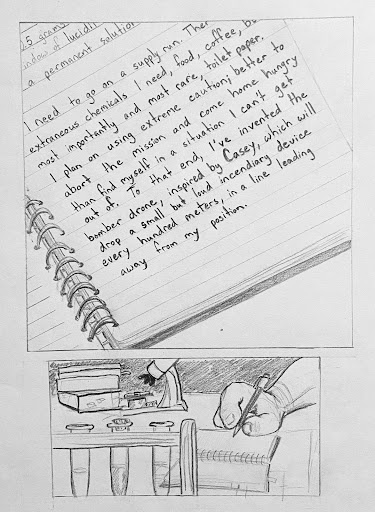 .5 grams
window of lucidi
a permanent solution
I need to go on a supply run. Ther
extraneous chemicals I need, food, coffee, bu
most importantly and most rare, toilet paper.
I plan on using extreme caution; better to
abort the mission and come home hungry
than find myself in a situation I can't get
out of. To that end, I've invented the
bomber drone, inspired by Casey, which will
drop a small but loud incendiary device
every hundred meters, in a line leading
away from my position.